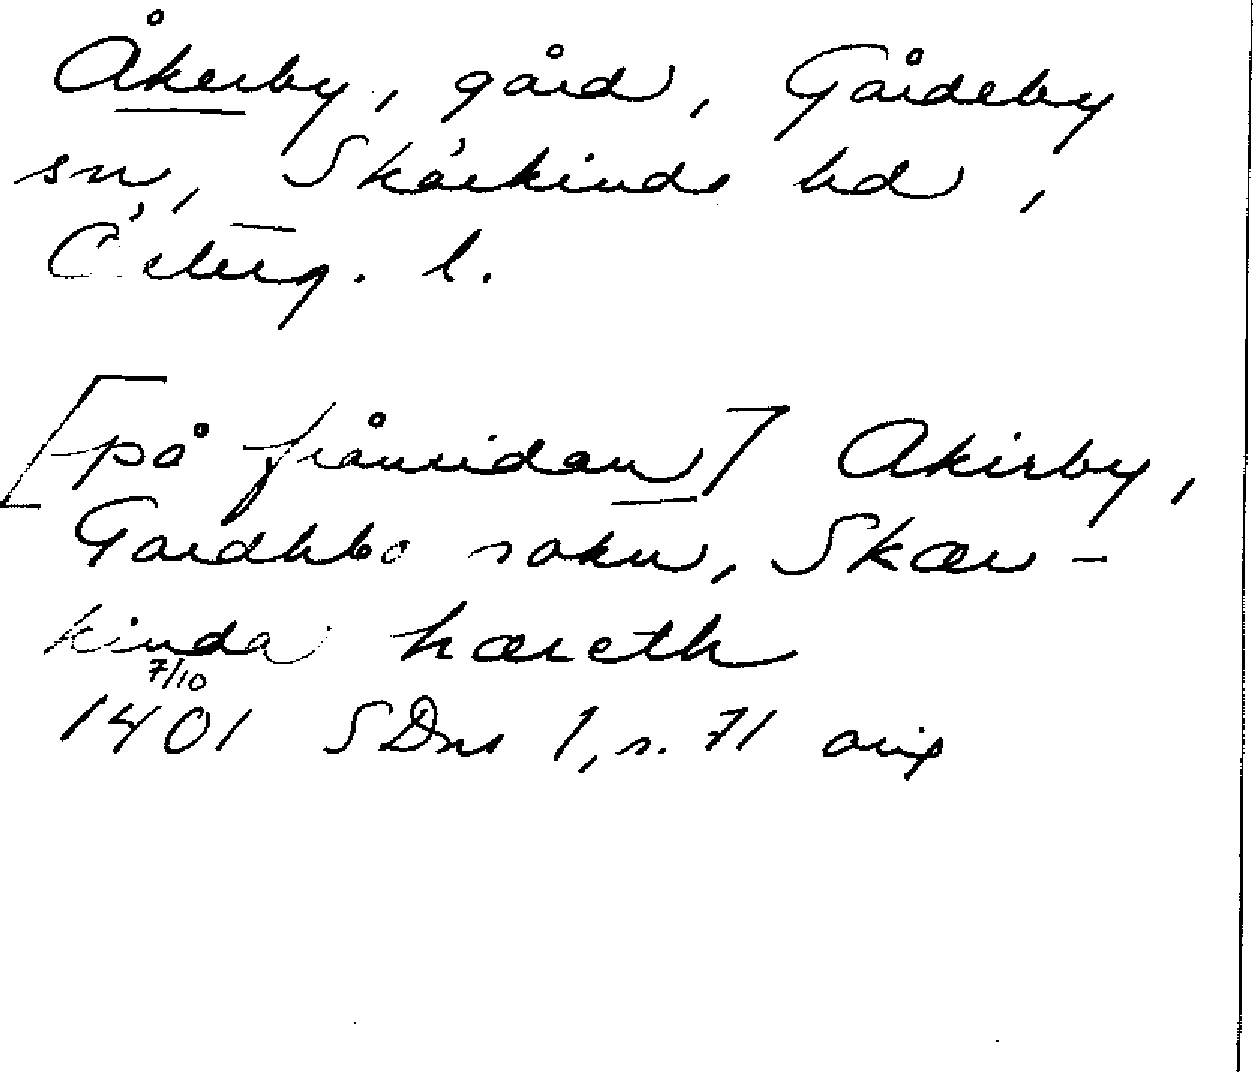 Åkerby, gård, Gårdeby
sn, Skärkinds hd,
Österg. l.
[på frånsidan] Akirby,
Gardhbo sokn, Skær-
kinda hæreth
7/10
1401 SDns 1, s. 71 orig